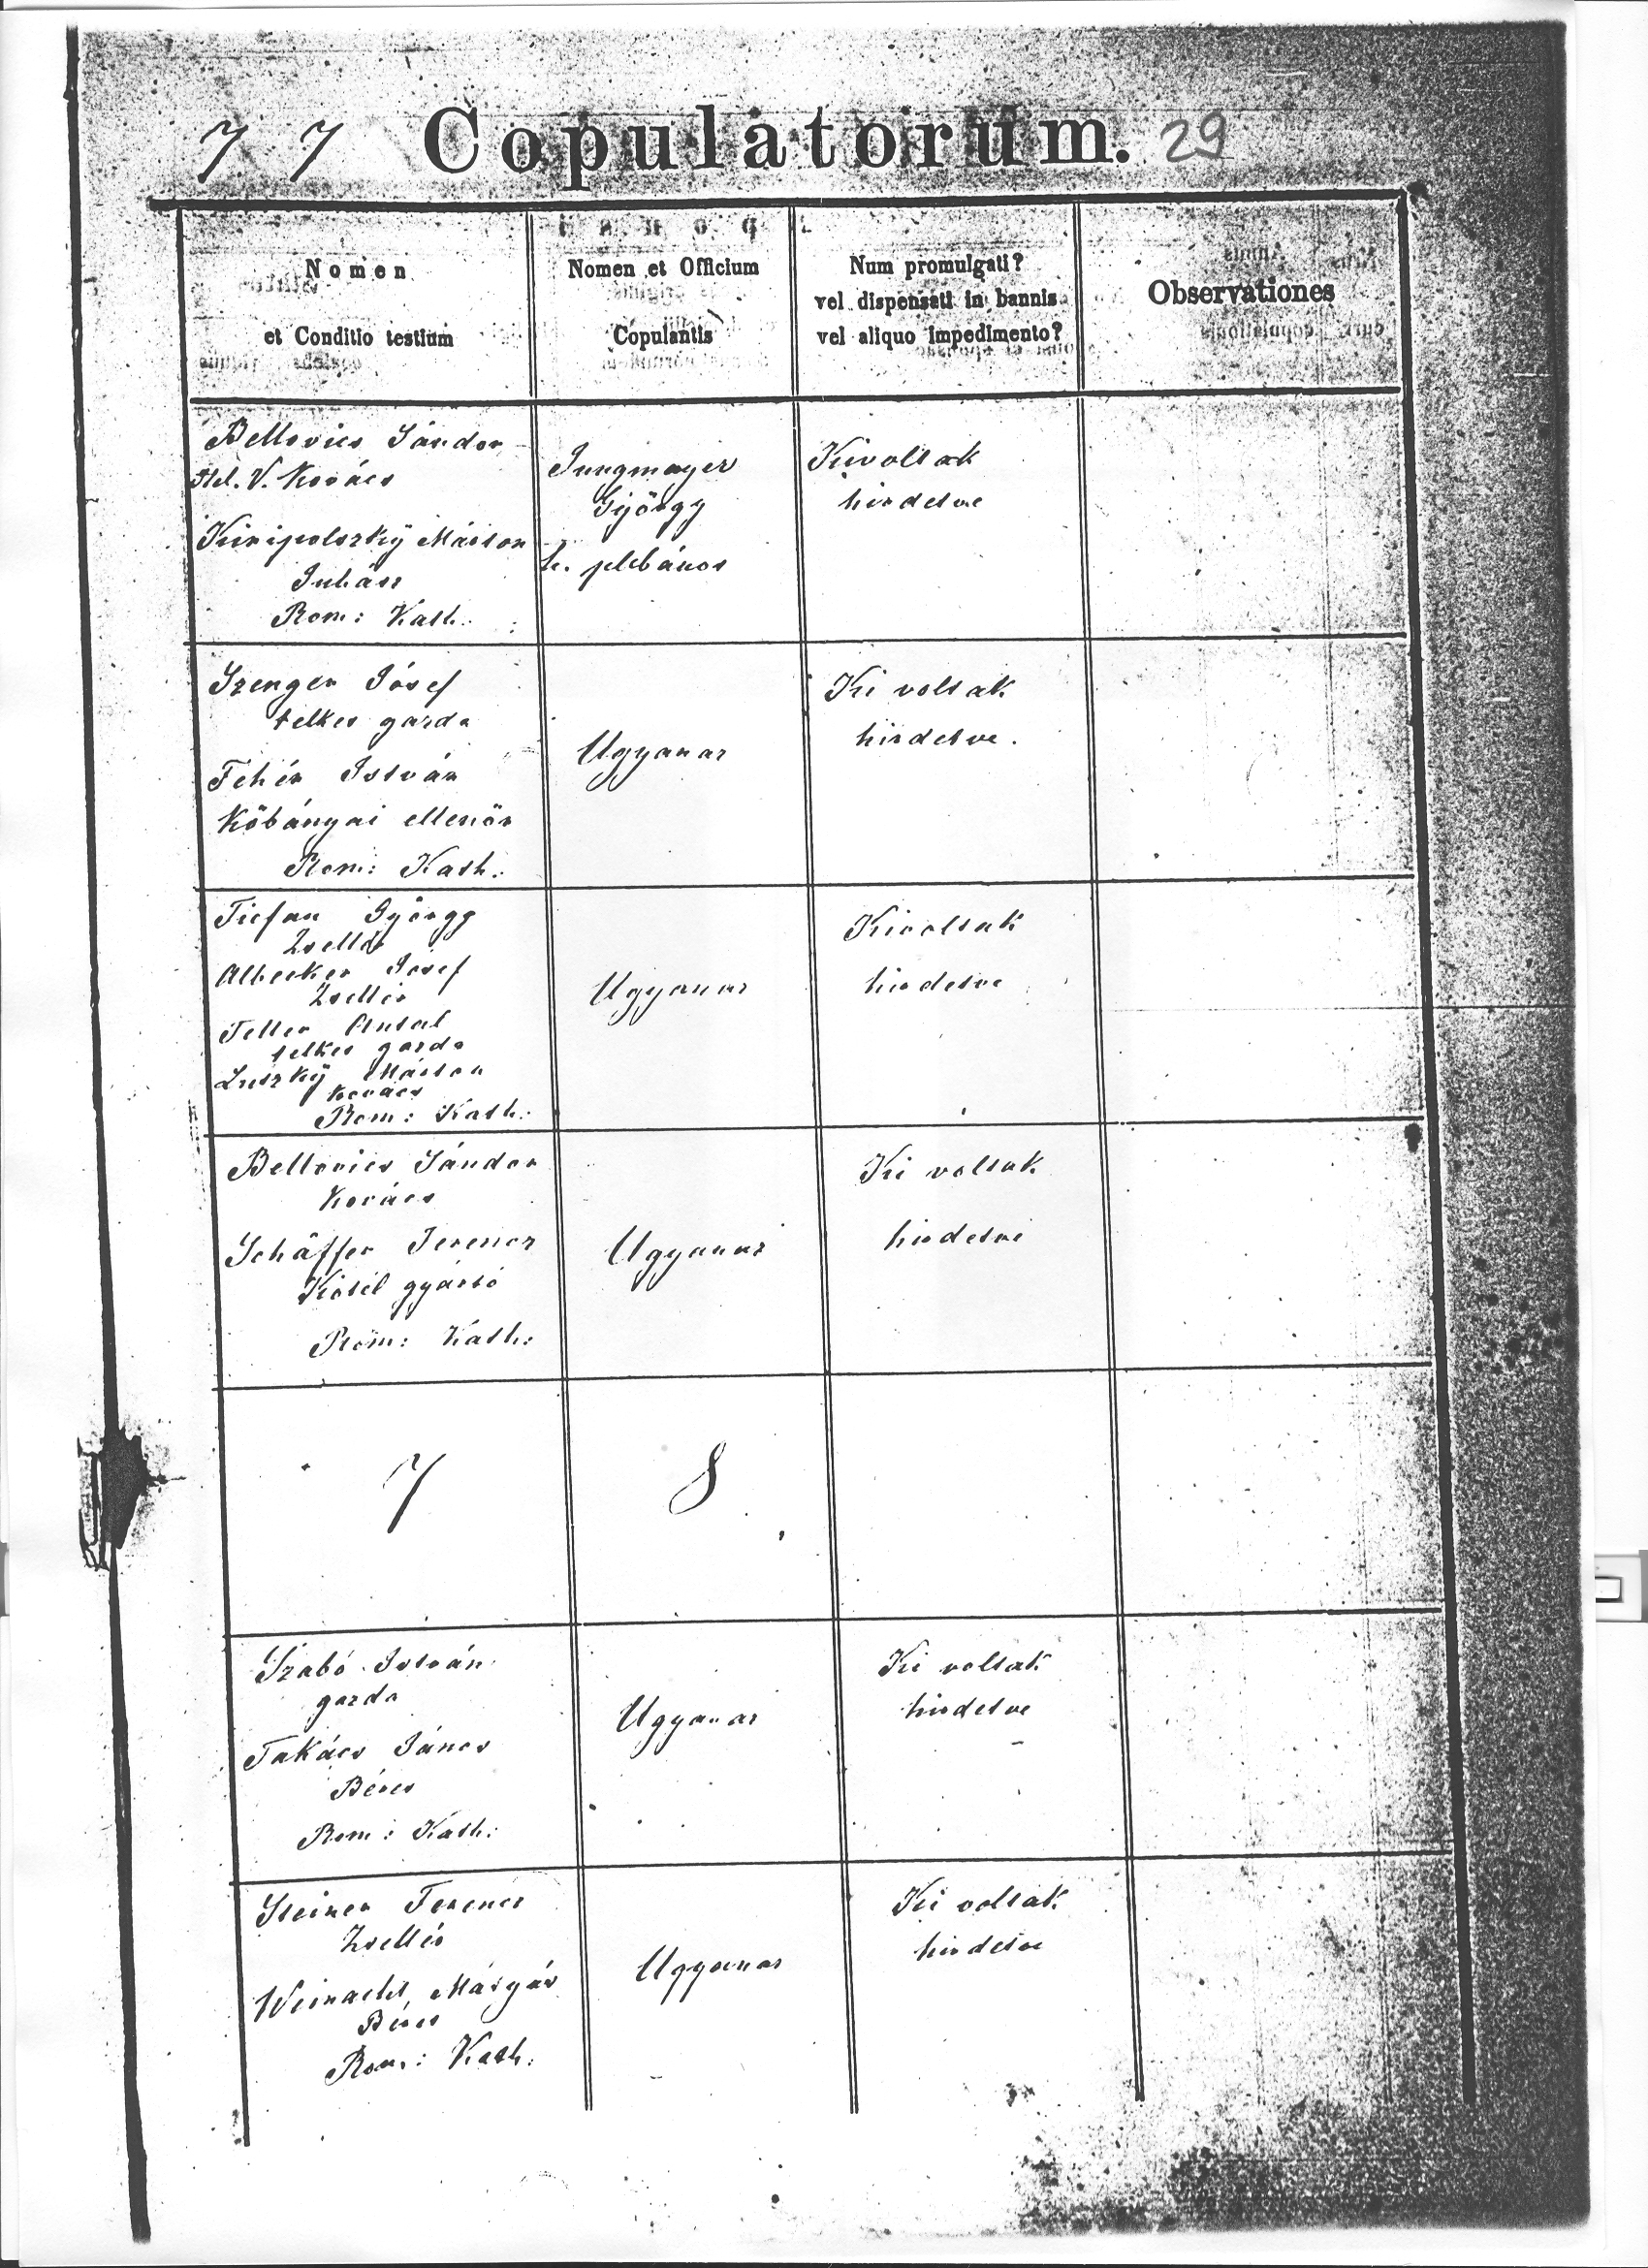 77 Copulatorum. 29
Nomen
et Conditio testium
Nomen et Officium
Copulantis
Num promulgati?
vel dispensati in bannis
vel aliquo impedimento?
Observationes
Bellovics Sándor
V. Kovács
Márton
Juhász
Rom: Kath.
Jungmayer
György
h. plébános
Kivoltak
hirdetve
Szenger Jósef
telkes gazda
Fehér István
Kőbányai ellenőr
Rom: Kath.
Ugyanaz
Ki voltak
hirdetve.
György
Zsellér
Jósef
Zsellér
Teller Antal
telkes gazda
Márton
kovács
Rom: Kath.
Ugyanaz
Kivoltak
hirdetve
Bellovics Sándor
Kovács
Schäffer Ferencz
Kötél gyártó
Rom: Kath:
Ugyanaz
Ki voltak
hirdetve
7 8
Szabó István
gazda
Takács János
Béres
Rom: Kath:
Ugyanaz
Ki voltak
hirdetve
Steiner Ferencz
Zsellér
Béres
Rom: Kath:
Ugyanaz
Ki voltak
hirdetve